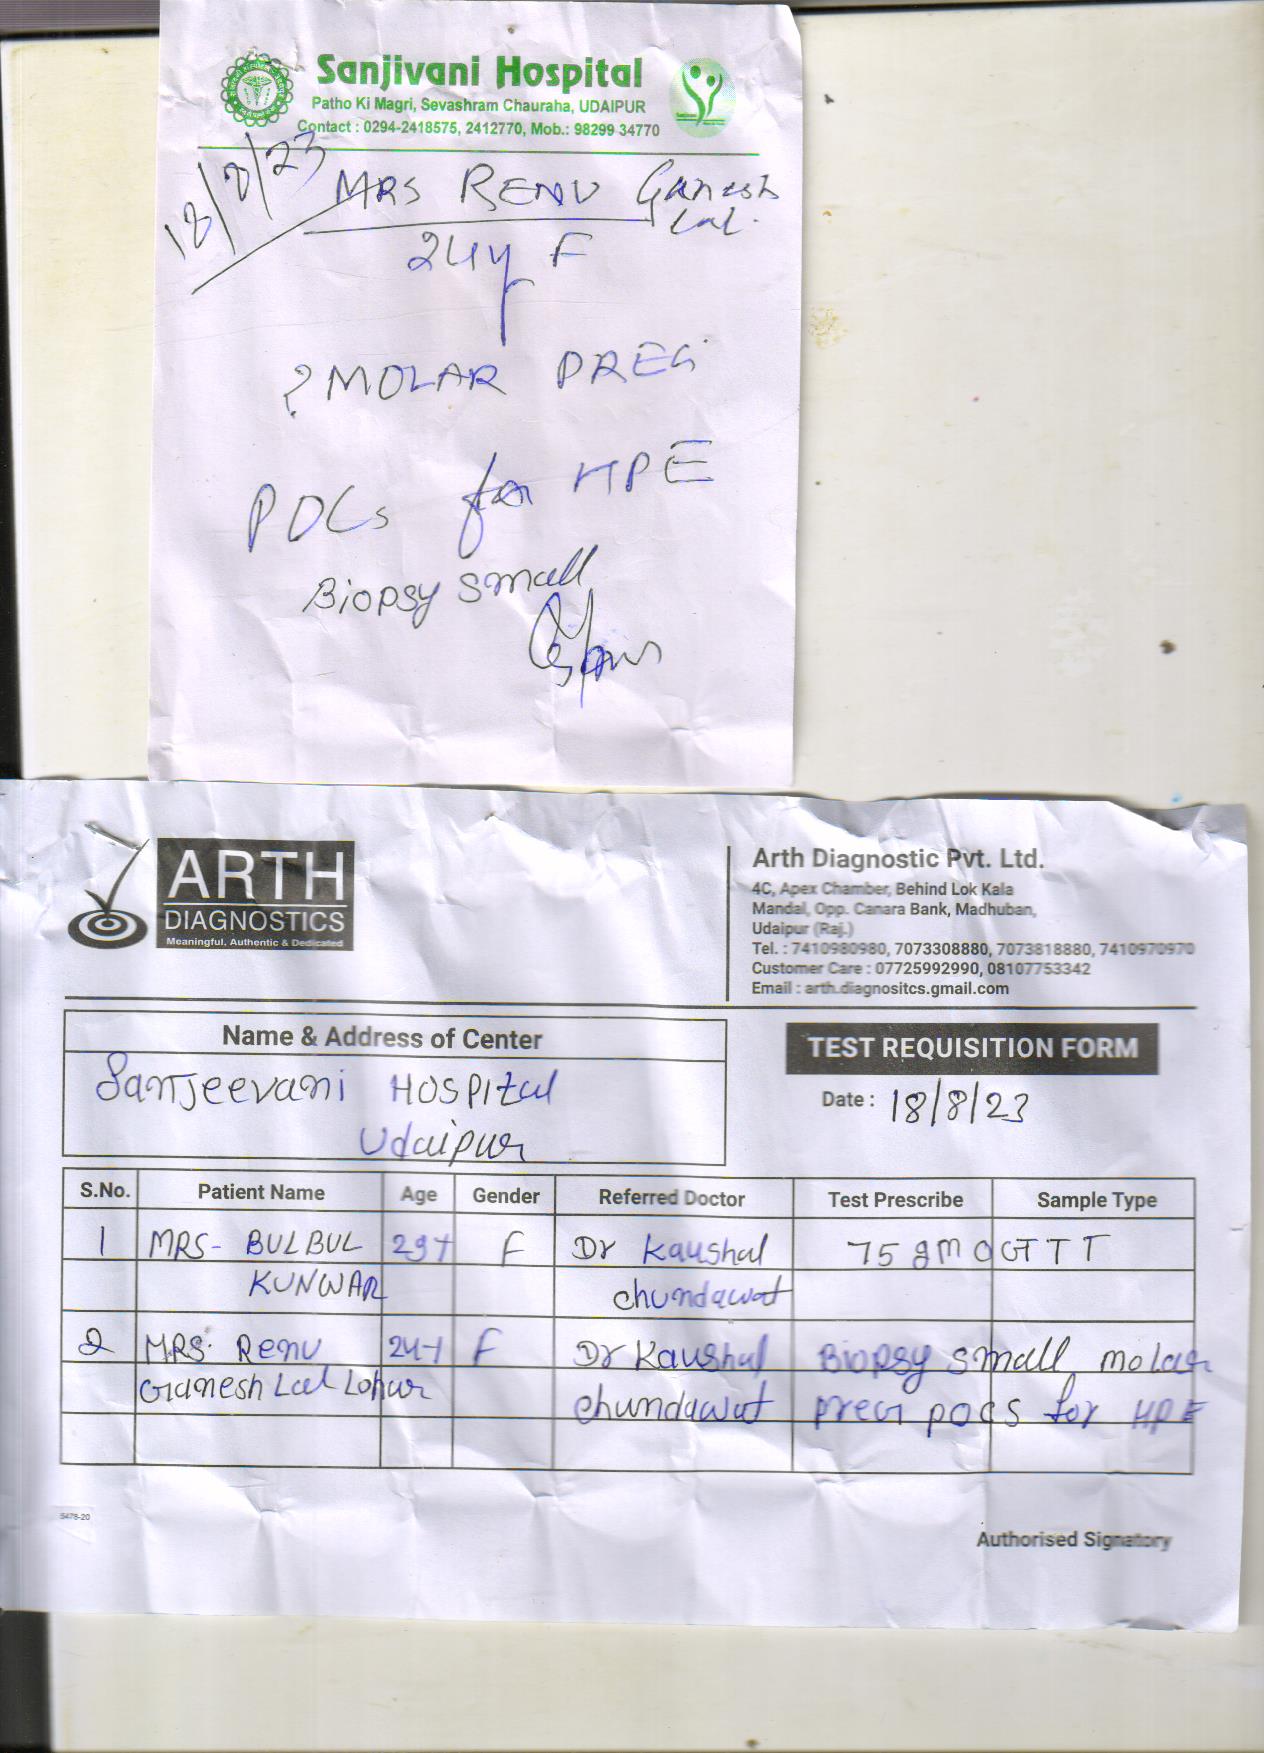 Sanjivani Hospital
Patho Ki Magri, Sevashram Chauraha, UDAIPUR
Contact : 0294-2418575, 2412770, Mob.: 98299 34770
18/8/23
MRS RENU Ganesh
Lal.
24y F
? MOLAR PREG
POCs for HPE
Biopsy small
ARTH
DIAGNOSTICS
Meaningful, Authentic & Dedicated
Arth Diagnostic Pvt. Ltd.
4C, Apex Chamber, Behind Lok Kala
Mandal, Opp. Canara Bank, Madhuban,
Udaipur (Raj.)
Tel. : 7410980980, 7073308880, 7073818880, 7410970970
Customer Care : 07725992990, 08107753342
Email : arth.diagnositcs.gmail.com
Name & Address of Center
Sanjeevani HOSPital
Udaipur
TEST REQUISITION FORM
Date : 18/8/23
S.No. Patient Name Age Gender Referred Doctor Test Prescribe Sample Type
1 MRS- BULBUL 29Y F Dr Kaushal 75 gm OGTTT
KUNWAR chundawat
2 MRS. Renu 24Y F Dr Kaushal Biopsy small molar
Ganesh Lal Lohar chundawat preg pocs for HPE
5478-20
Authorised Signatory